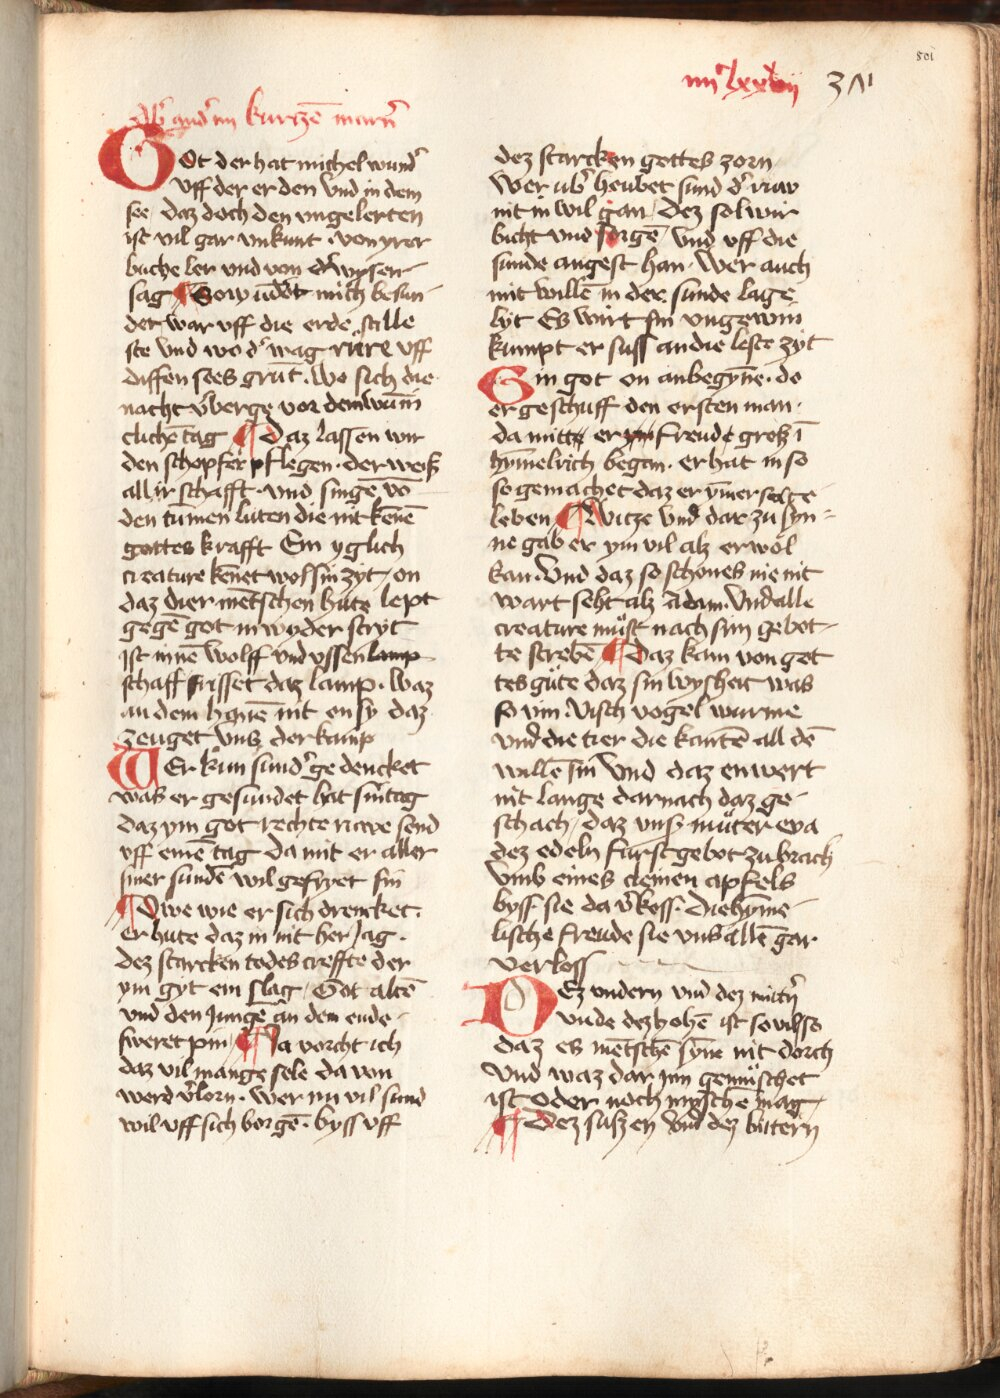 501
iiii^c lxxvij 381
Ab' and' im kurtzē marn'
GOt der hat michel wund'
vff der erden vnd in dem
see / daz doch den vngelerten
ist vil gar vnkunt · von yrer
buche ler vnd von der wysen
sag ¶ So wūdert mich besun-
der war vff die erde stille
ste vnd wo d' wag rüre vff
diffen sees grūt · wo sich die
nacht v'berge vor dem wūni
clichē tag ¶ Daz lassen wir
den schopfer pflegen · der weiß
all ir schafft · vnd singē vō
den tūmen luten die nit kēnē
gottes krafft Ein yglich
creature kēnet wol sin zyt / on
daz dier mētschen hūte lept
gegē got in wyder stryt
Ist inne wolff vnd vssen lamp
schaff frisset daz lamp · waz
an dem hynē nit on sy daz
zeuget vnß der kamp
WEr kūn sund' ge dencket
was er gesundet hat sin tag
daz ym got rechte ruwe send
vff einē tag da mit er aller
siner sundē wil gefryet sin
¶ Owe wie er sich drencket ·
er hute daz in nit her Jag ·
dez starcken todes creffte der
ym gyt ein slag / Got altē
vnd den Jungē an dem ende ·
sweret pin ¶ Ja vorcht ich
daz vil mange sele da von
werd v'lorn · wer nu vil sund
wil vff sich borgē · byss vff
dez starcken gottes zorn
wer ub' heubet sund d' ruw
nit in wil gan / dez sol wir
bicht vnd sorgē vnd vff die
sunde angest han · wer auch
mit willē in der sunde lage
lyt Es wirt sin vngewin
kumpt er suss an die leste zyt
Ein got on anbegyne · do
er geschuff den ersten man ·
da mitte er freude groß ī
hymelrich began · er hat in so
so gemachet daz er ymer solte
leben ¶ Witze vnd dar zu syn-
ne gab er ym vil alz er wol
kan · vnd daz so schones nie nit
wart seht alz Adam · vnd alle
creature müst nach sim gebot-
te strebē ¶ Daz kam von got
tes güte daz sin wysheit was
so vin · visch vogel wurme
vnd die tier die kantē all dē
willē sin vnd daz enwert
nit lange darnach daz ge-
schach / daz vnß müter eva
dez edeln furst gebot zu brach
vmb eines cleinen apfels
byss · sie da v'koss · die hyme-
lische freude sie vns allē gar
verloss
DEz vndern vnd dez mittn'
vnde dez hohē ist so vil so
daz es mētschē syne nit dorch
vnd waz dar inn gemüschet
ist oder noch myschē mag /
¶ Dez süszen vnd dez bittern